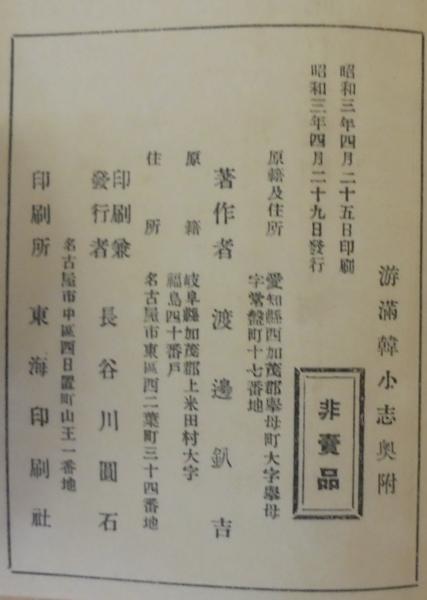 游滿韓小志奥附
非賣品
昭和三年四月二十五日印刷
昭和三年四月二十九日發行
原籍及住所
愛知縣西加茂郡擧母町大字擧母
字常盤町十七番地
著作者 渡邊釟吉
原籍
岐阜縣加茂郡上米田村大字
福島四十番戸
住所
名古屋市東區西二葉町三十四番地
印刷兼
發行者
長谷川圓石
名古屋市中區西日置町山王一番地
印刷所 東海印刷社